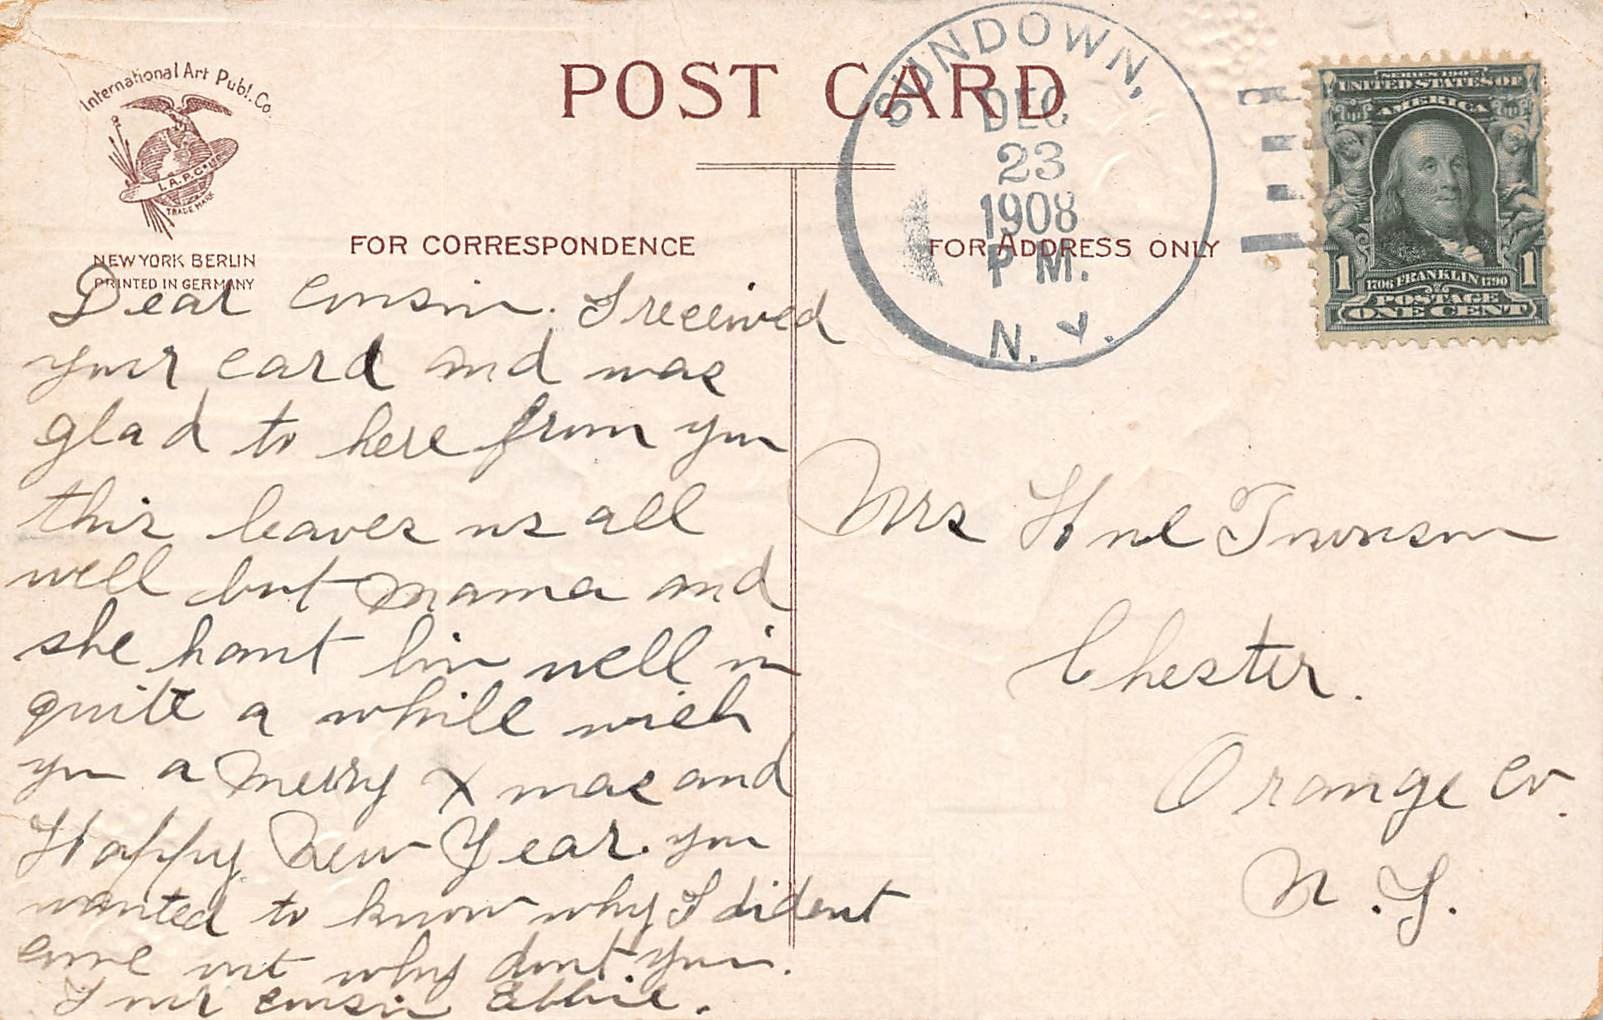 International Art Publ. Co.
I.A.P.Co
TRADE MARK
NEW YORK BERLIN
PRINTED IN GERMANY
POST CARD
FOR CORRESPONDENCE
FOR ADDRESS ONLY
SUNDOWN,
DEC
23
1908
P M.
N. Y.
UNITED STATES OF
AMERICA
1 1706 FRANKLIN 1790 1
POSTAGE
ONE CENT
Dear Cousin. I received
your card and was
glad to here from you
this leaves us all
well but Mama and
she hant bin well in
quite a while wish
you a Merry Xmas and
Happy New Year. you
wanted to know why I dident
come out why dont you.
Your cousin Ebbie.
Mrs Townson
Chester.
Orange Co.
N.Y.